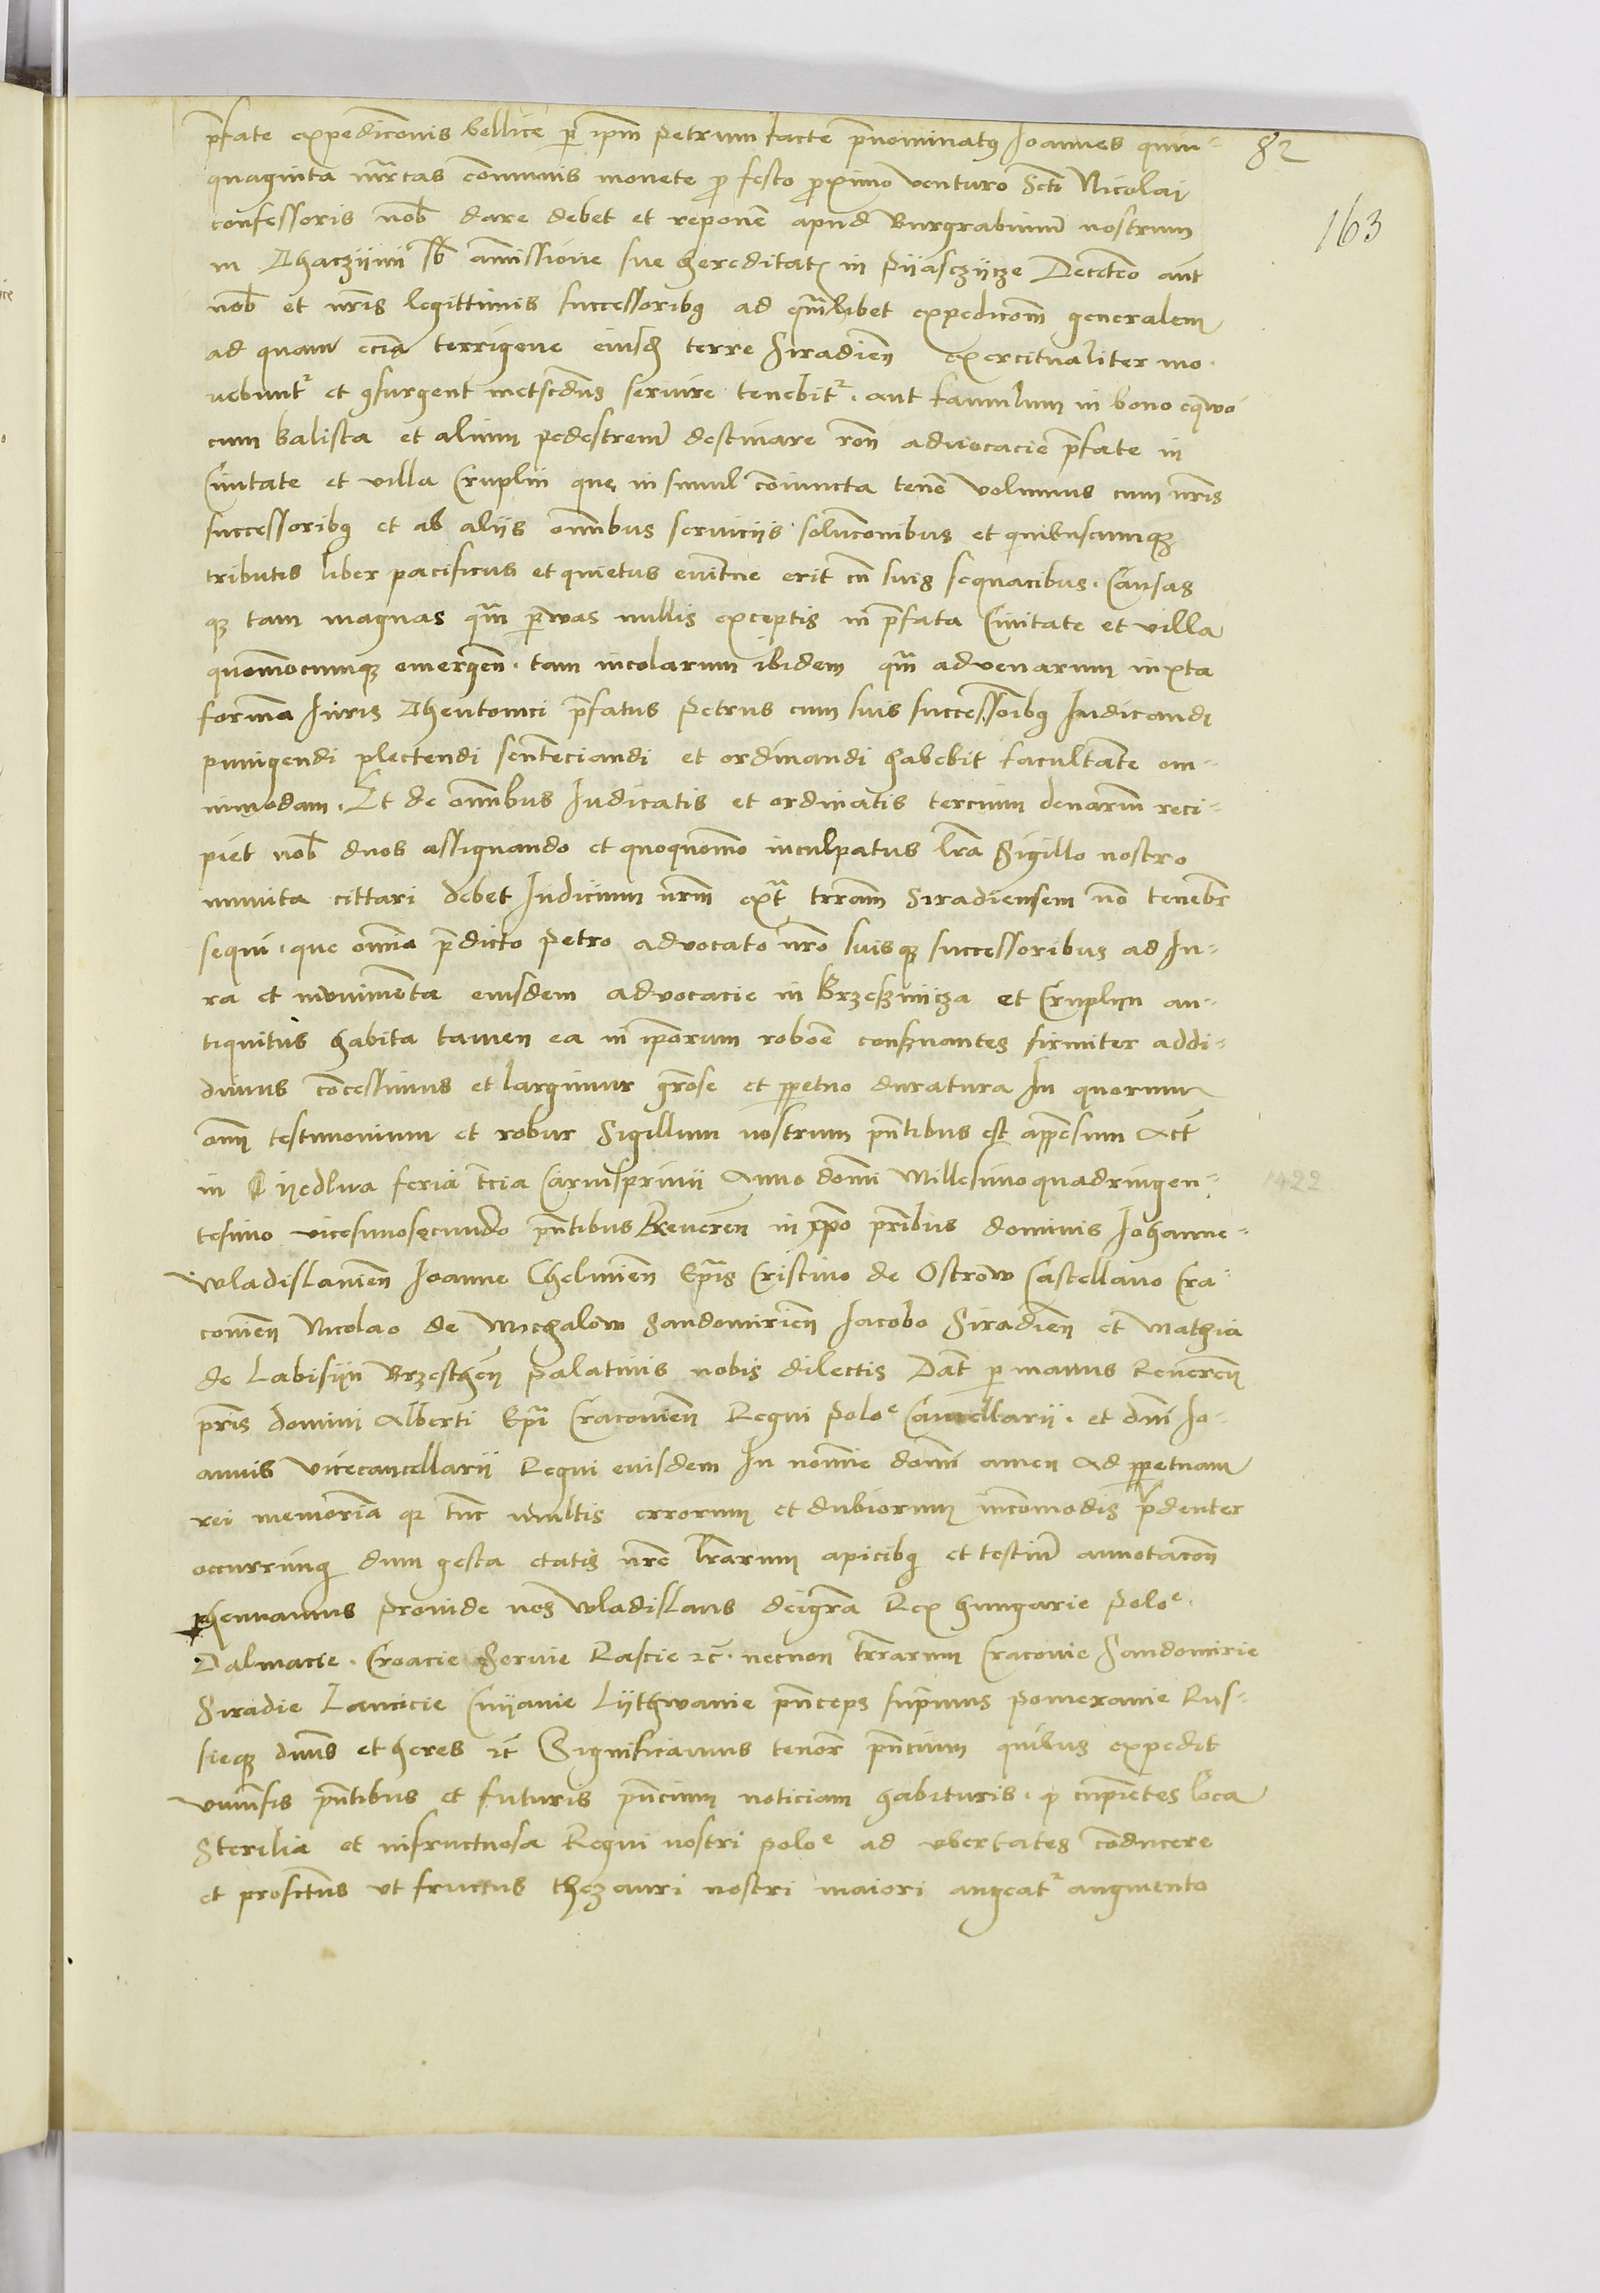 p̄fate expedic̄onis bellice p̱ ip̄m Petrum facte p̄nominatꝯ Joannes quin-
82
quaginta mr̄cas co͞munis monete p̱ festo p̱ximo venturo Scti Nicolai
163
confessoris nob̄ dare debet et repone͞ apud Burgrabium̄ nostrum
in Thacziim sb̄ a͞missione sue hereditat͛ in Piiasczijcze De cetero aut͞
nob̄ et nr̄is legittimis successoribꝯ ad qua͞libet expedico͞m generalem
ad quam ecia͞ terrigene eiusd͞ terre Siradien͞ exercitualiter mo-
uebunt͛ et ꝯsurgent metsecdus seruire tenebit͛. aut famulum in bono eqwo
cum balista et alium pedestrem̄ destinare ro͞n aduocacie p̄fate in
Ciuitate et villa Cruplin que in simul co͞iuncta tene͞ volumus cum nr̄is
successoribꝯ et ab aliis om̄nibus seruiciis soluc̄onibus et quibuscumqꝫ
tributis liber pacificus et quietus euit̄ne erit cu͞ suis sequacibus. Causas
qꝫ tam magnas qua͞ p̱uas nullis exceptis in p̄fata Ciuitate et villa
quom̄ocumqꝫ emergen͞. tam incolarum ibidem qua͞ aduenarum iuxta
forma͞ Iuris Theutonici p̄fatus Petrus cum suis successoribꝯ Iudicandi
punigendi plectendi sentenciandi et ordinandi habebit facultate͞ om-
nimodam. Et de om̄nibus Iudicatis et ordinatis tercium denariu͞ reci-
piet nob̄ duos assignando et quoquom̄o inculpatus lr̄a Sigillo nostro
munita cittari debet Iudicium nr̄m ext̄ terra͞m Siradiensem no͞ tenebr͛
sequi. que om̄nia p̄dicto Petro aduocato nr̄o suisqꝫ successoribus ad Iu-
ra et munimenta eiusdem aduocacie in Brzeßnicza et Cruplyn an-
tiquitus habita tamen ea in ip̄orum robor̄e conseruantes firmiter addi-
dimus co͞cessimus et largimur gr̄ose et p̱petuo duratura In quorum
om̄ testimonium et robur Sigillum nostrum pn̄tibus est appensum Act͞
in Yedlna feria t̄cia Carnispriuii Anno dom̄i Millesimoquadringen-
1422
tesimo vicesimosecundo pn̄tibus Reueren͞ in xp̄o pr̄ibus dominis Johanne-
Wladislauien͞ Joanne Chelmien͞ Ep̄is Cristino de Ostrow Castellano Cra-
couien͞ Nicolao de Michalow Sandomirien͞ Jacobo Siradien͞ et Mathia
de Labisiin Brzesthen͞ Palatinis nobis dilectis Dat͞ p̱ manus Reueren͞
pr̄is domini Alberti Ep̄i Cracouien͞ Regni Poloᵉ Cancellarii. et dn̄i Jo-
annis vicecancellarii Regni eiusdem In nom̄ine dom̄i amen Ad p̱petuam
rei memoria͞ qꝫ tu͞c multis errorum et dubiorum incom̄odis pr̄denter
occurrimꝯ dum gesta etatis nr̄e lr̄arum apicibꝯ et testium̄ annotaco͞n
p̱hennamus Prouide nos Wladislaus deigr̄a Rex Hungarie Poloᵉ.
Dalmacie. Croacie Seruie Rascie ⁊c̄. necnon tr̄rarum Cracouie Sandomirie
Siradie Lancicie Cuijauie Lijthwanie pn̄ceps sup̄mus Pomeranie Rus-
sieqꝫ dn̄us et heres ⁊c̄ Significamus tenor͛ pn̄cium quibus expedit
vniuersis pn̄tibus et futuris pn̄cium noticiam habituris. ꝙ cupientes loca
Sterilia et infructuosa Regni nostri Poloᵉ ad vbertates co͞ducere
et profectus vt fructus thezauri nostri maiori augeat͛ augmento